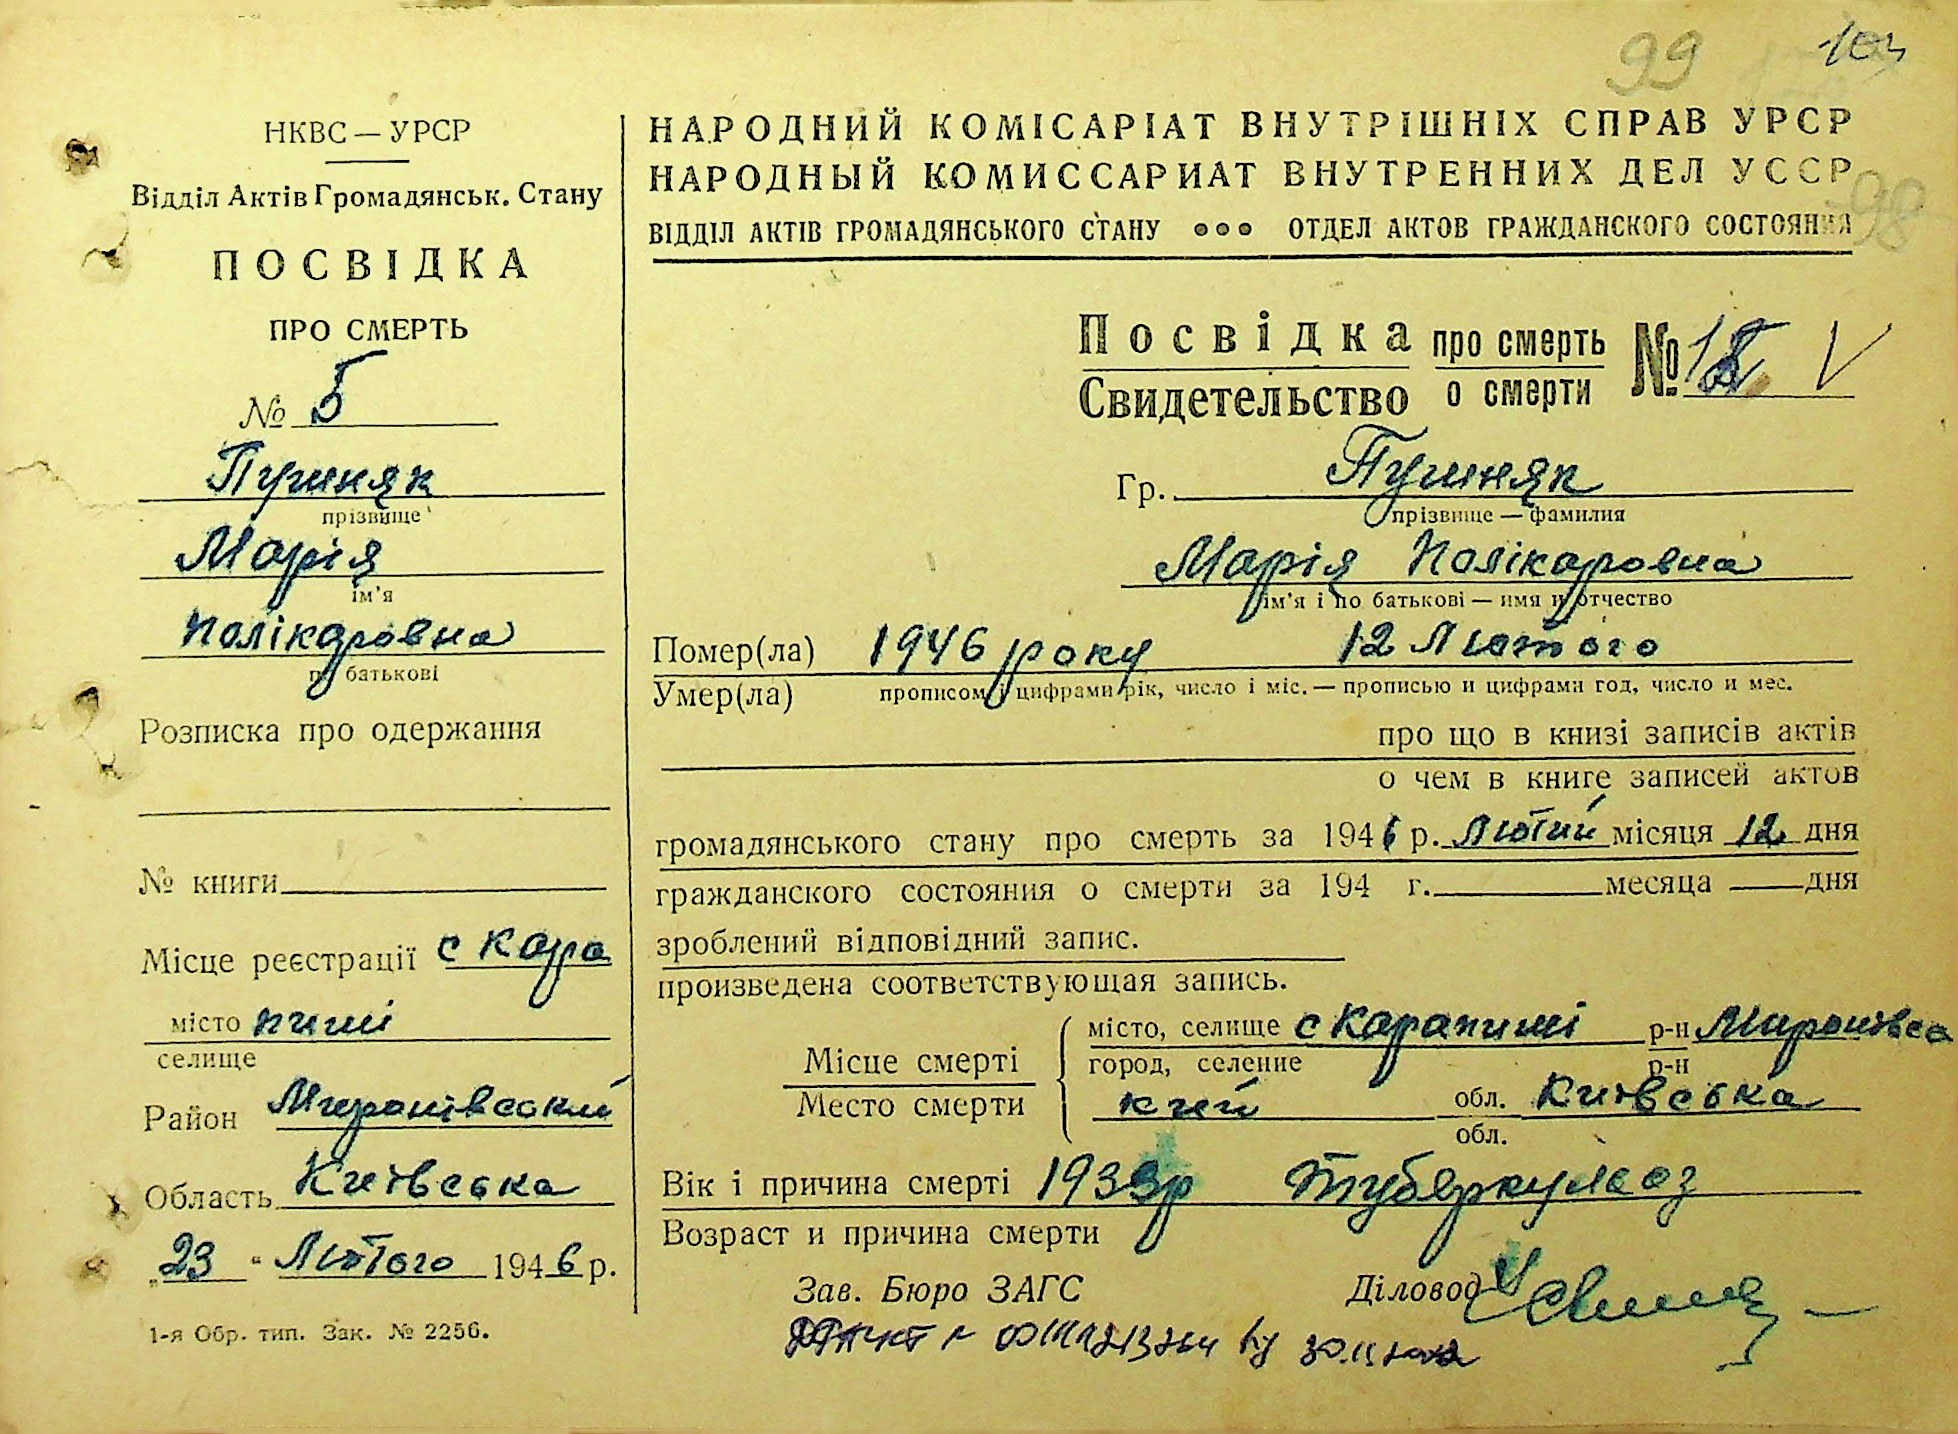 99
98
НКВС — УРСР
Відділ Актів Громадянськ. Стану
ПОСВІДКА
ПРО СМЕРТЬ
№ 5
Пушняк
прізвище
Марія
ім'я
Полікаровна
по батькові
Розписка про одержання
№ книги
Місце реєстрації с Кара
місто пиші
селище
Район Миронівський
Область Київська
„23 " Лютого 1946 р.
1-я Обр. тип. Зак. № 2256.
НАРОДНИЙ КОМІСАРІАТ ВНУТРІШНІХ СПРАВ УРСР
НАРОДНЫЙ КОМИССАРИАТ ВНУТРЕННИХ ДЕЛ УССР
ВІДДІЛ АКТІВ ГРОМАДЯНСЬКОГО СТАНУ ••• ОТДЕЛ АКТОВ ГРАЖДАНСКОГО СОСТОЯНИЯ
Посвідка про смерть №
Свидетельство о смерти
Гр. Пушняк
прізвище — фамилия
Марія Полікаровна
ім'я і по батькові — имя и отчество
Помер(ла) 1946 року 12 Лютого
Умер(ла) прописом і цифрами рік, число і міс. — прописью и цифрами год, число и мес.
про що в книзі записів актів
о чем в книге записей актов
громадянського стану про смерть за 1946 р. Лютий місяця 12 дня
гражданского состояния о смерти за 194 г. месяца дня
зроблений відповідний запис.
произведена соответствующая запись.
Місце смерті місто, селище с Карапиші р-н Миронівсь
Место смерти город, селение р-н
кий обл. Київська
обл.
Вік і причина смерті 1933р Туберкульоз
Возраст и причина смерти
Зав. Бюро ЗАГС Діловод